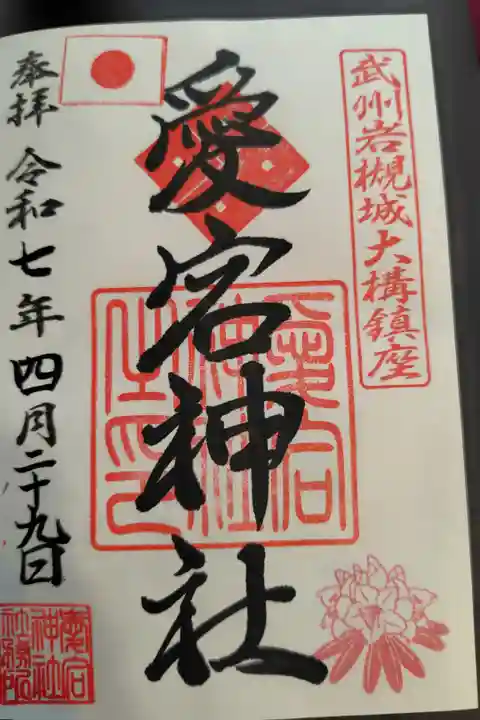 武州岩槻城大構鎮座
愛宕神社
愛宕神社之印
奉拝 令和七年四月二十九日
愛宕神社社務所